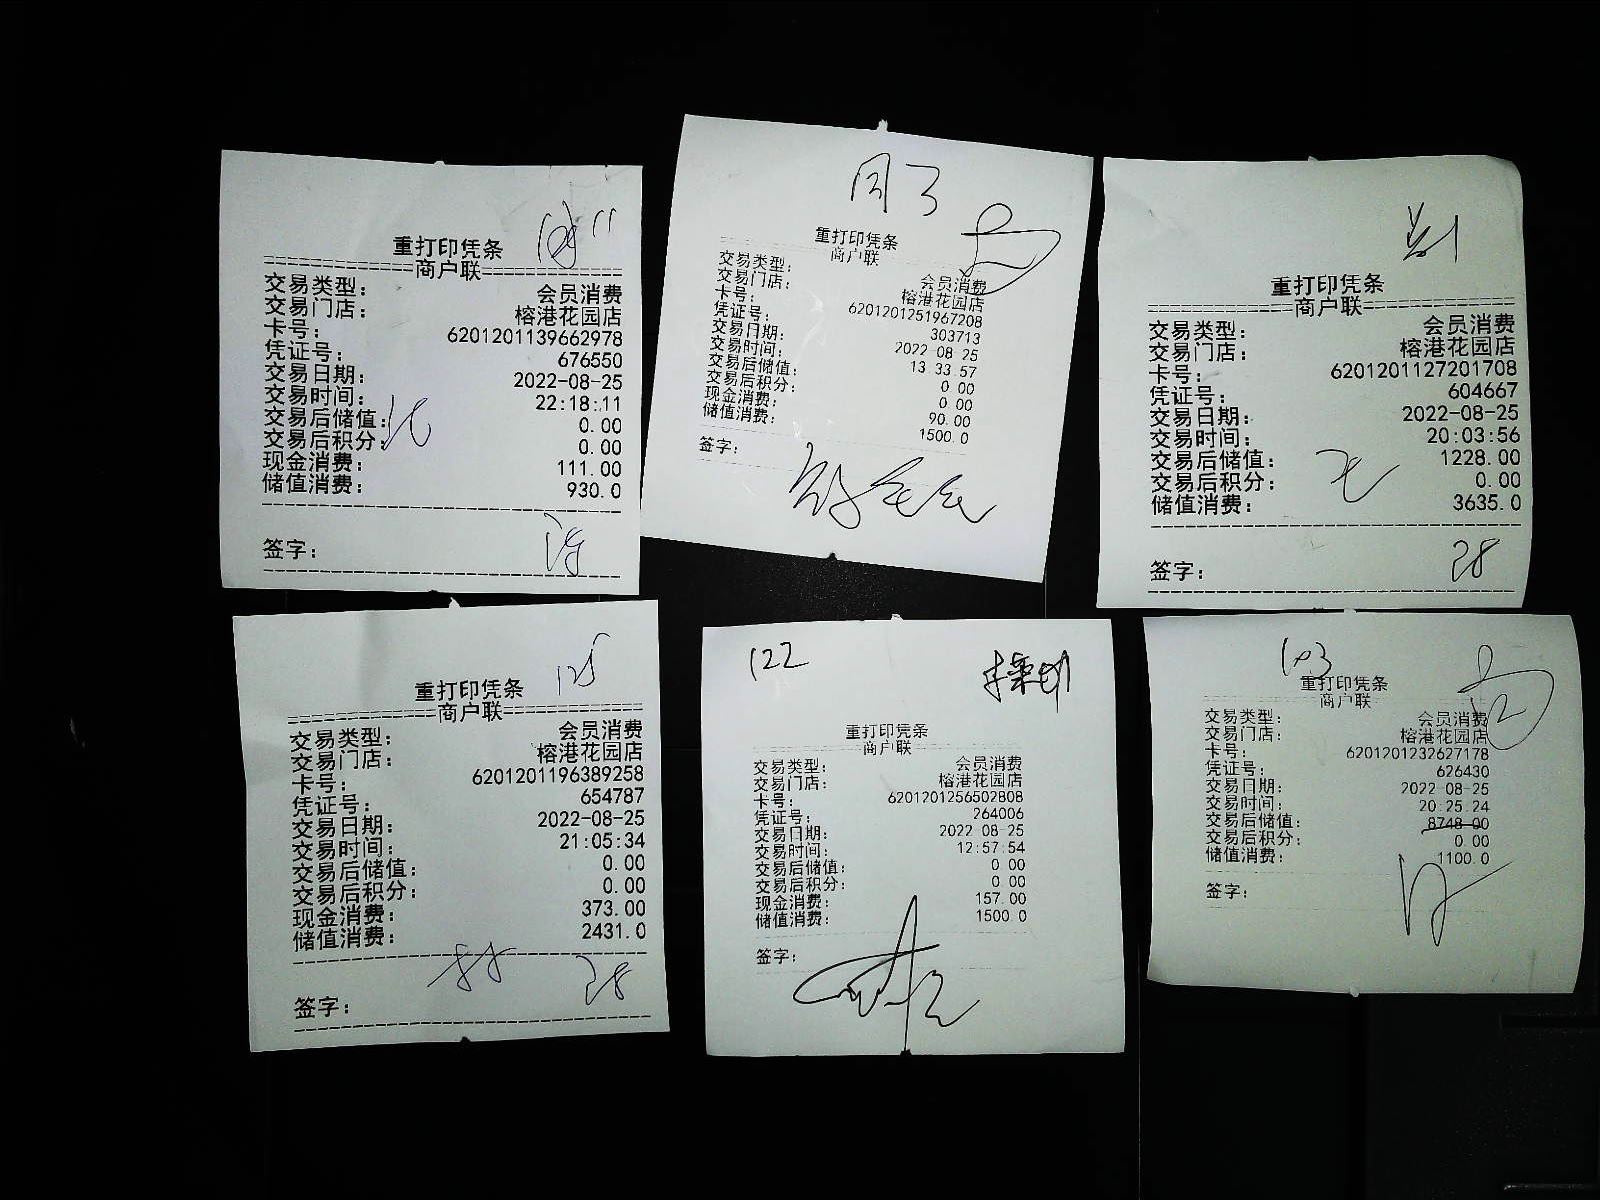 重打印凭条
商户联
交易类型： 会员消费
交易门店： 榕港花园店
卡号： 6201201139662978
凭证号： 676550
交易日期： 2022-08-25
交易时间： 22:18:11
交易后储值： 0.00
交易后积分： 0.00
现金消费： 111.00
储值消费： 930.0
签字：
重打印凭条
商户联
交易类型： 会员消费
交易门店： 榕港花园店
卡号： 6201201251967208
凭证号： 303713
交易日期： 2022-08-25
交易时间： 13:33:57
交易后储值： 0.00
交易后积分： 0.00
现金消费： 90.00
储值消费： 1500.0
签字：
重打印凭条
商户联
交易类型： 会员消费
交易门店： 榕港花园店
卡号： 6201201127201708
凭证号： 604667
交易日期： 2022-08-25
交易时间： 20:03:56
交易后储值： 1228.00
交易后积分： 0.00
储值消费： 3635.0
签字： 28
125
重打印凭条
商户联
交易类型： 会员消费
交易门店： 榕港花园店
卡号： 6201201196389258
凭证号： 654787
交易日期： 2022-08-25
交易时间： 21:05:34
交易后储值： 0.00
交易后积分： 0.00
现金消费： 373.00
储值消费： 2431.0
签字： 28
122
重打印凭条
商户联
交易类型： 会员消费
交易门店： 榕港花园店
卡号： 6201201256502808
凭证号： 264006
交易日期： 2022-08-25
交易时间： 12:57:54
交易后储值： 0.00
交易后积分： 0.00
现金消费： 157.00
储值消费： 1500.0
签字：
103
重打印凭条
商户联
交易类型： 会员消费
交易门店： 榕港花园店
卡号： 6201201232627178
凭证号： 626430
交易日期： 2022-08-25
交易时间： 20:25:24
交易后储值： 8748.00
交易后积分： 0.00
储值消费： 1100.0
签字：